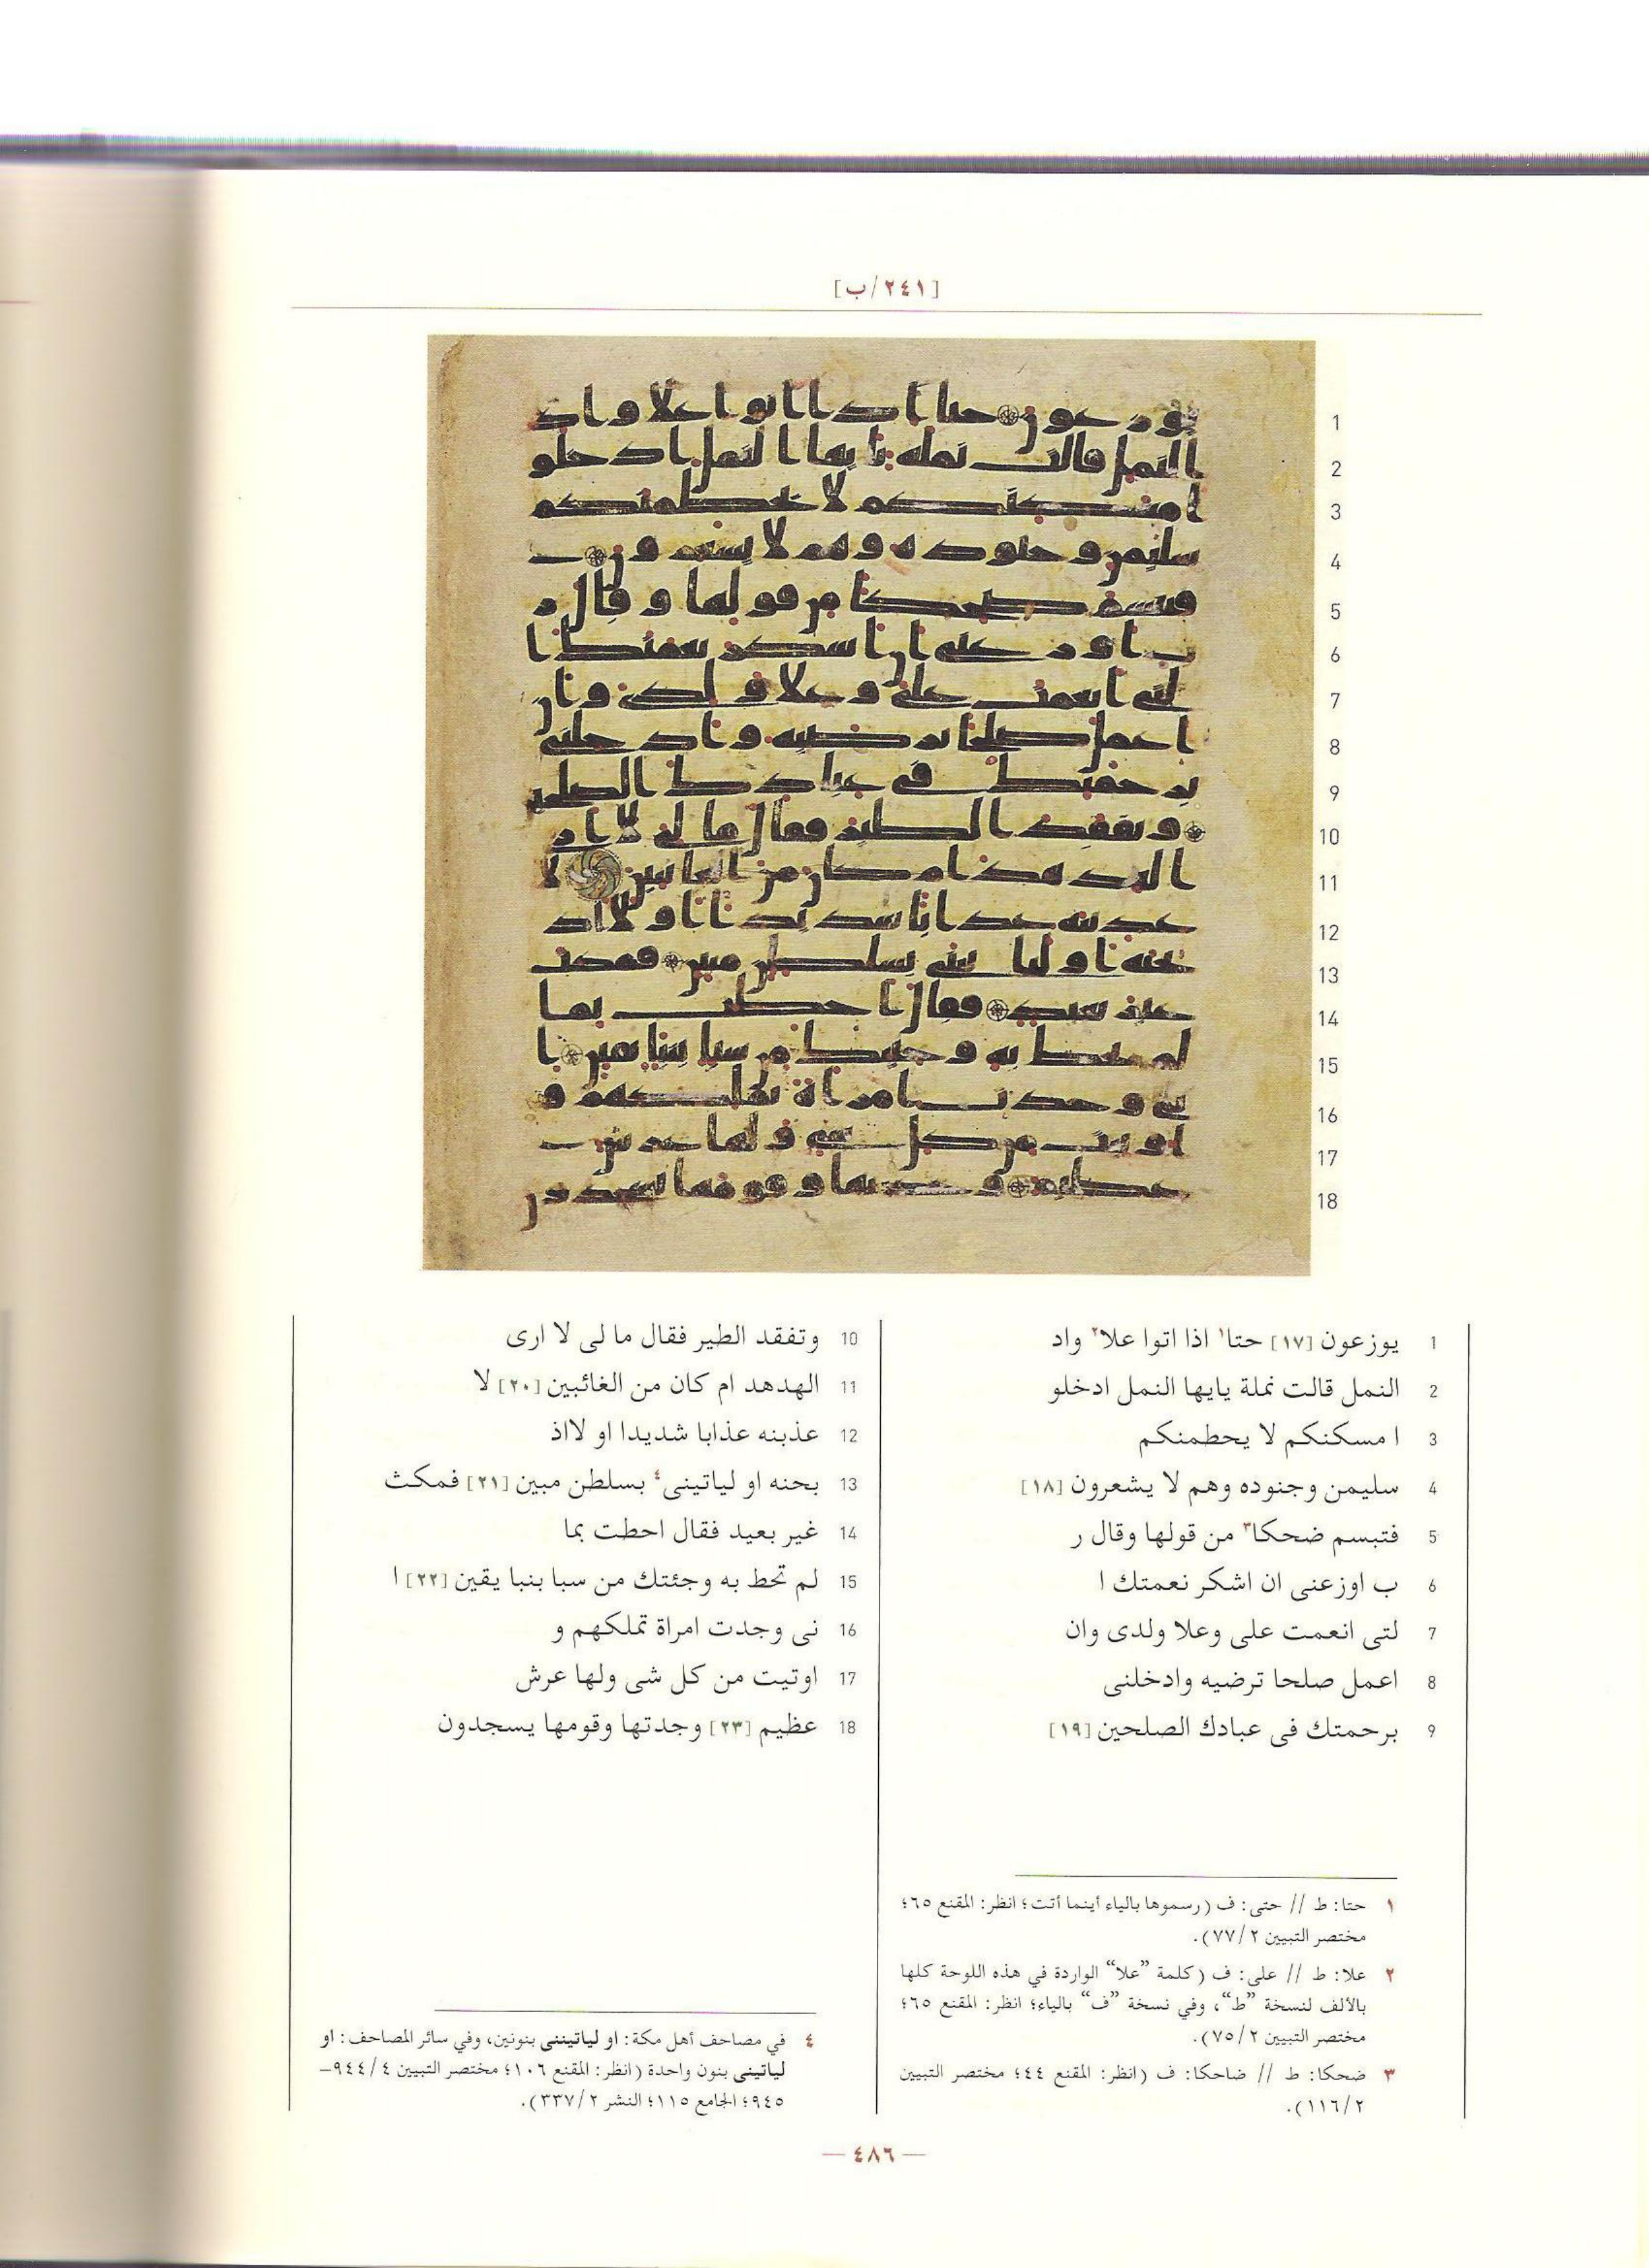 [٢٤١/ب]
1
2
3
4
5
6
7
8
9
10
11
12
13
14
15
16
17
18
1 يوزعون [١٧] حتا١ اذا اتوا علا٢ واد
2 النمل قالت نملة يايها النمل ادخلو
3 ا مسكنكم لا يحطمنكم
4 سليمن وجنوده وهم لا يشعرون [١٨]
5 فتبسم ضحكا٣ من قولها وقال ر
6 ب اوزعنى ان اشكر نعمتك ا
7 لتى انعمت على وعلا ولدى وان
8 اعمل صلحا ترضيه وادخلنى
9 برحمتك فى عبادك الصلحين [١٩]
10 وتفقد الطير فقال ما لى لا ارى
11 الهدهد ام كان من الغائبين [٢٠] لا
12 عذبنه عذابا شديدا او لااذ
13 بحنه او لياتينى٤ بسلطن مبين [٢١] فمكث
14 غير بعيد فقال احطت بما
15 لم تحط به وجئتك من سبا بنبا يقين [٢٢] ا
16 نى وجدت امراة تملكهم و
17 اوتيت من كل شى ولها عرش
18 عظيم [٢٣] وجدتها وقومها يسجدون
١ حتا: ط // حتى: ف (رسموها بالياء أينما أتت؛ انظر: المقنع ٦٥؛
مختصر التبيين ٧٧/٢).
٢ علا: ط // على: ف (كلمة ”علا“ الواردة في هذه اللوحة كلها
بالألف لنسخة ”ط“، وفي نسخة ”ف“ بالياء؛ انظر: المقنع ٦٥؛
مختصر التبيين ٧٥/٢).
٣ ضحكا: ط // ضاحكا: ف (انظر: المقنع ٤٤؛ مختصر التبيين
١١٦/٢).
٤ في مصاحف أهل مكة: او لياتيننى بنونين، وفي سائر المصاحف: او
لياتينى بنون واحدة (انظر: المقنع ١٠٦؛ مختصر التبيين ٩٤٤/٤–
٩٤٥؛ الجامع ١١٥؛ النشر ٣٣٧/٢).
— ٤٨٦ —